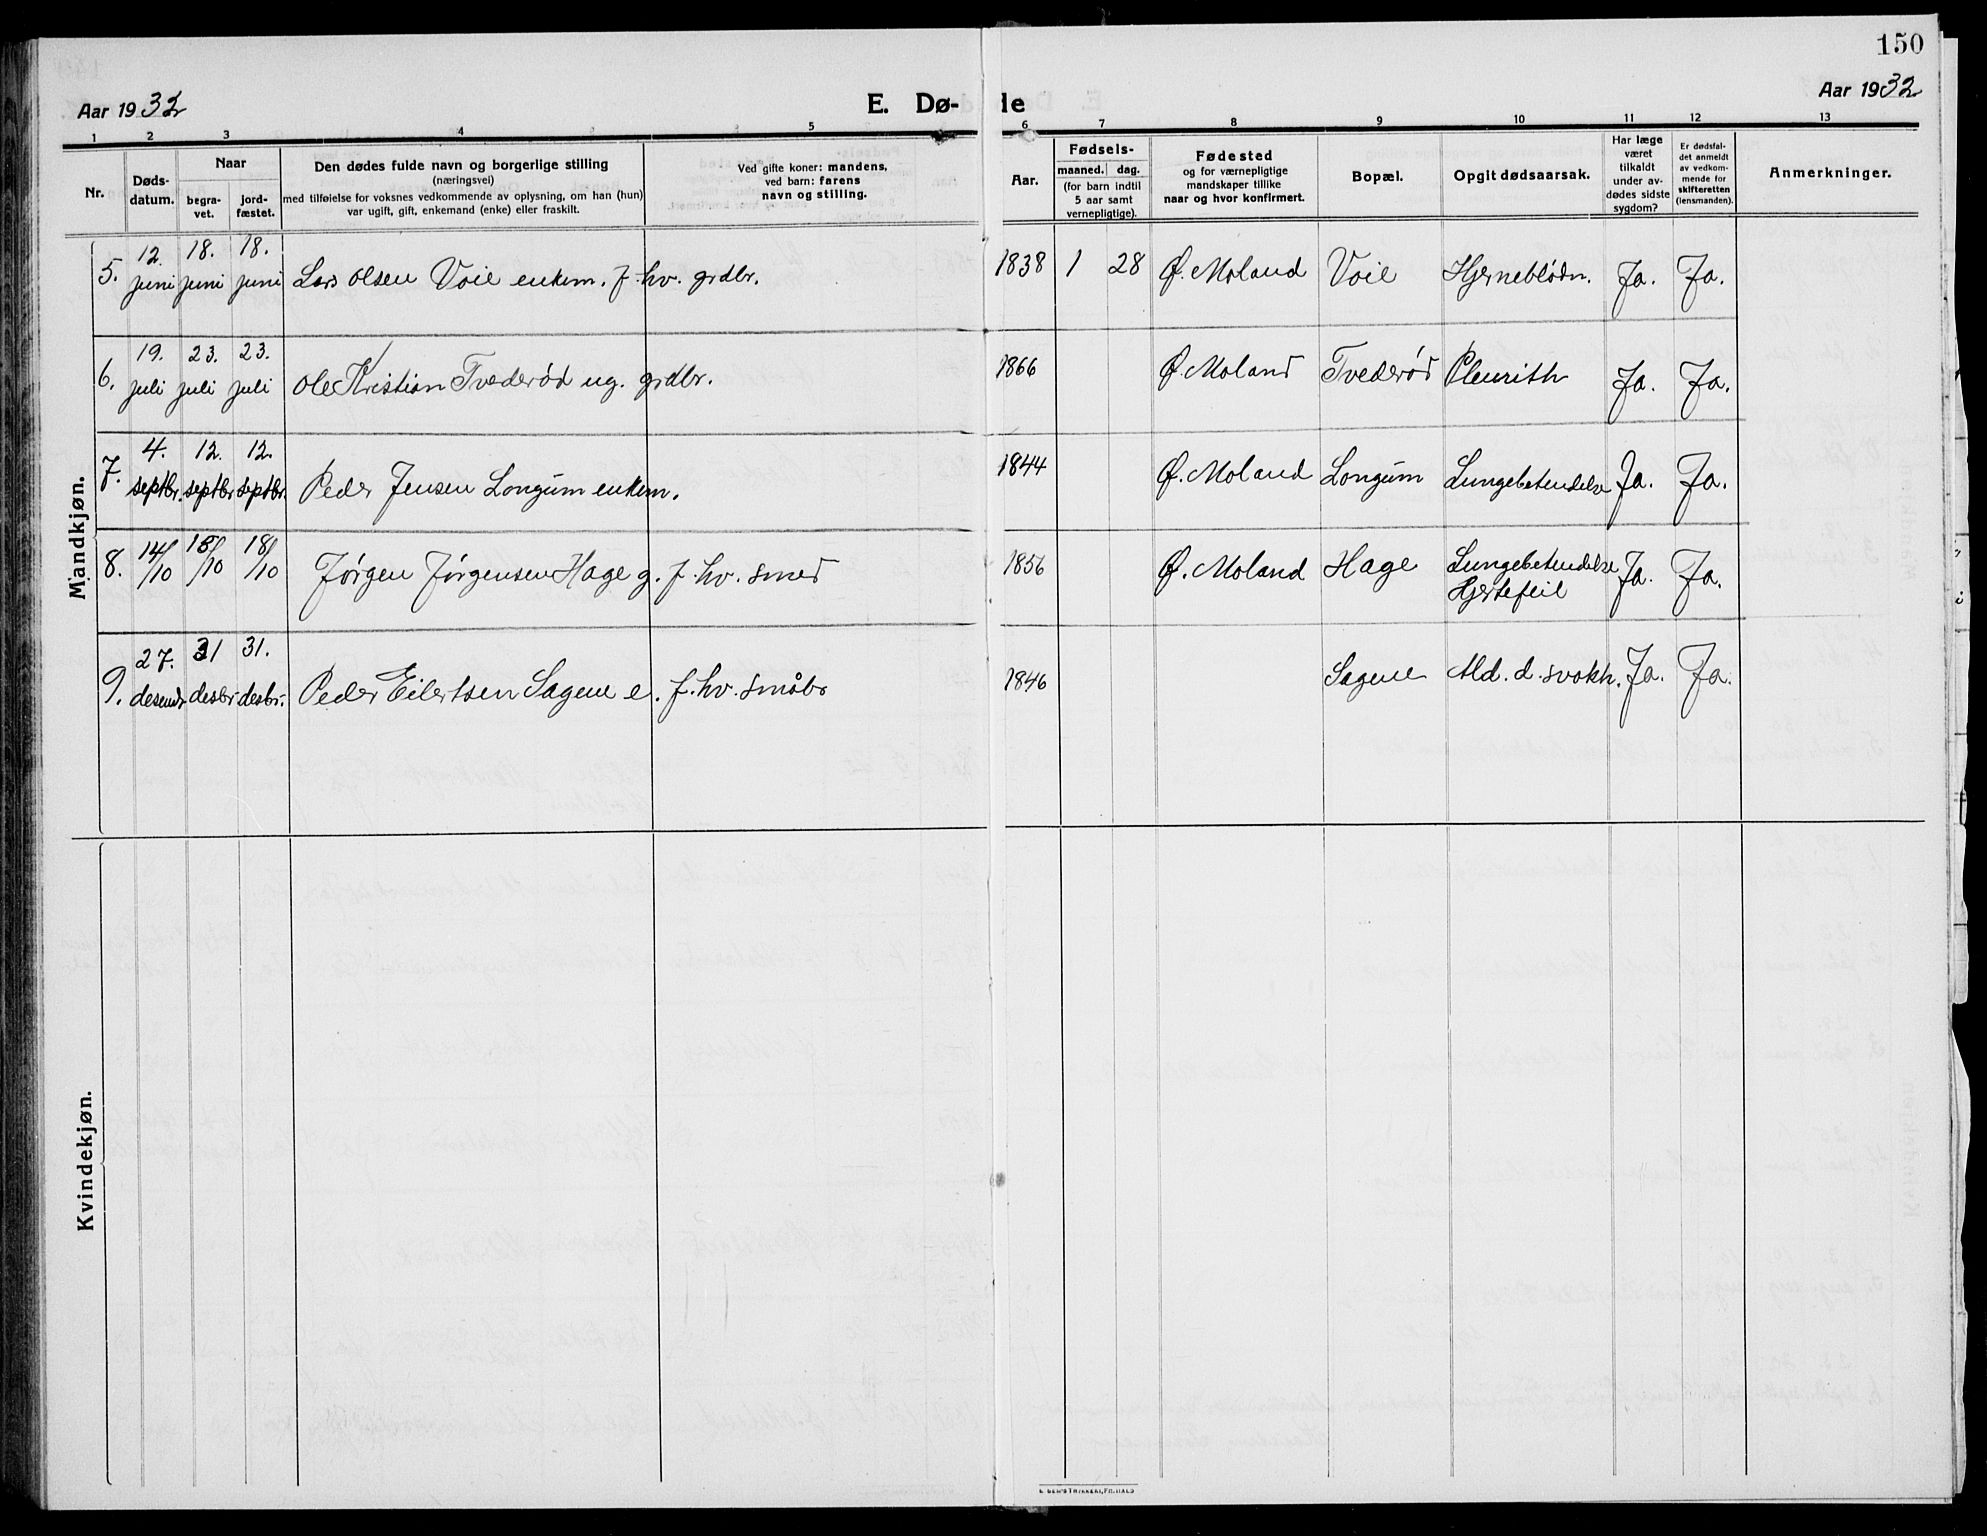 150
Aar 1932 E. Dø- de Aar 1932
1 2 3 4 5 6 7 8 9 10 11 12 13
Nr.
Døds-
datum.
Naar
begra-
vet.
jord-
fæstet.
Den dødes fulde navn og borgerlige stilling
(næringsvei)
med tilføielse for voksnes vedkommende av oplysning, om han (hun)
var ugift, gift, enkemand (enke) eller fraskilt.
Ved gifte koner: mandens,
ved barn: farens
navn og stilling.
Aar.
Fødsels-
maaned. dag.
(for barn indtil
5 aar samt
vernepligtige).
Fødested
og for værnepligtige
mandskaper tillike
naar og hvor konfirmert.
Bopæl.
Opgit dødsaarsak.
Har læge
været
tilkaldt
under av-
dødes sidste
sygdom?
Er dødsfal-
det anmeldt
av vedkom-
mende for
skifteretten
(lensmanden).
Anmerkninger.
Mandkjøn.
12. 18. 18.
5. juni juni juni Lars Olsen Voie enkem. f. hv. grdbr. 1838 1 28 Ø. Moland Voie Hjerneblødn. Ja. Ja.
19. 23. 23.
6. juli juli juli Ole Kristian Tvederød ug. grdbr. 1866 Ø. Moland Tvederød Pleurith Ja. Ja.
4. 12. 12.
7. septbr. septbr. septbr. Peder Jensen Longum enkem. 1844 Ø. Moland Longum Lungebetendelse Ja. Ja.
8. 14/10 18/10 18/10 Jørgen Jørgensen Hage g. f. hv. smed 1856 Ø. Moland Hage Lungebetendelse Ja. Ja.
Hjertefeil
27. 31 31.
9. desembr. desbr. desbr. Peder Eilertsen Sagene e. f. hv. småbr 1846 Sagene Ald. d. svakh. Ja. Ja.
Kvindekjøn.